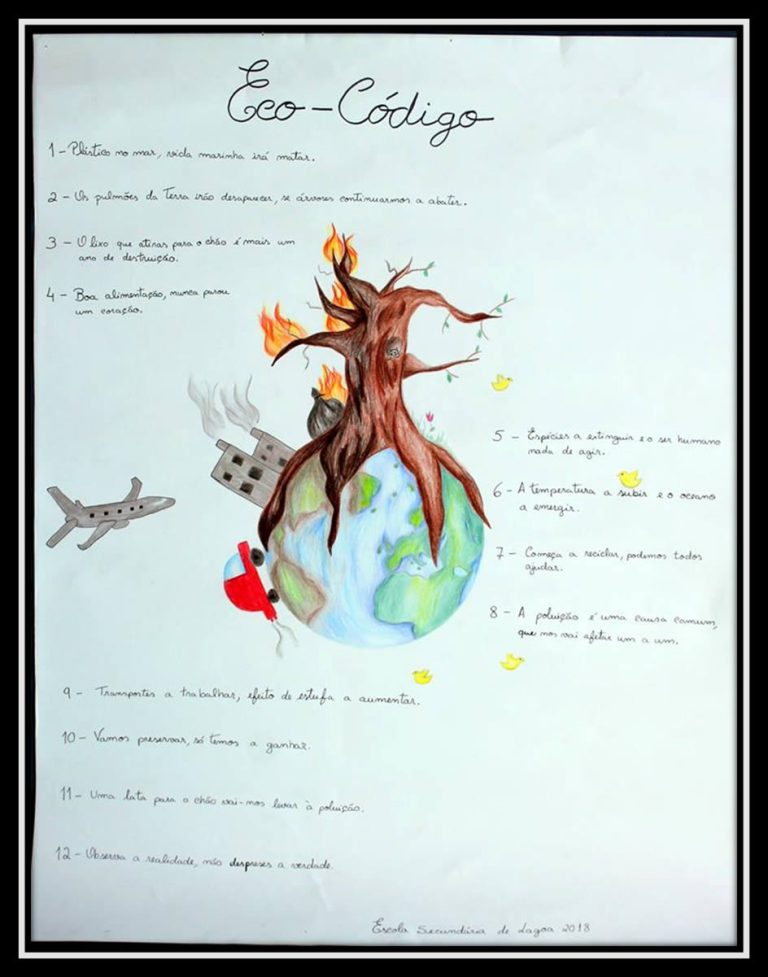 Eco-Código
1 - Plástico no mar, vida marinha irá matar.
2 - Os pulmões da Terra irão desaparecer, se árvores continuarmos a abater.
3 - O lixo que atiras para o chão é mais um
ano de destruição.
4 - Boa alimentação, nunca parou
um coração.
5 - Espécies a extinguir e o ser humano
nada de agir.
6 - A temperatura a subir e o oceano
a emergir.
7 - Começa a reciclar, podemos todos
ajudar.
8 - A poluição é uma causa comum,
que nos vai afetar um a um.
9 - Transportes a trabalhar, efeito de estufa a aumentar.
10 - Vamos preservar, só temos a ganhar.
11 - Uma lata para o chão vai-nos levar à poluição.
12 - Observa a realidade, não desprezes a verdade.
Escola Secundária de Lagoa 2018